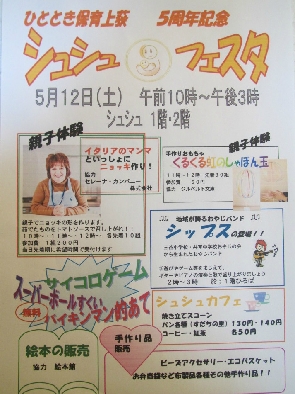 ひととき保育上荻 5周年記念
シュシュ フェスタ
5月12日(土) 午前10時～午後3時
シュシュ 1階・2階
親子体験
イタリアのマンマ
といっしょに
ニョッキ作り!
協力
セレーナ・カンパニー
株式会社
親子でニョッキの形を作ります。
参加費 1組200円
親子体験
手作りおもちゃ
くるくる虹のしゃぼん玉
協力 ジルベルト文庫
地域が誇るおやじバンド
シップスの登場!!
サイコロゲーム
スーパーボールすくい
バイキンマン的あて
無料
シュシュカフェ
焼き立てスコーン
パン各種(すだちの里) 130円・140円
コーヒー・紅茶
絵本の販売
協力 絵本館
手作り品
販売
ビーズアクセサリー・エコバスケット
お弁当袋など布製品各種その他手作り品!!